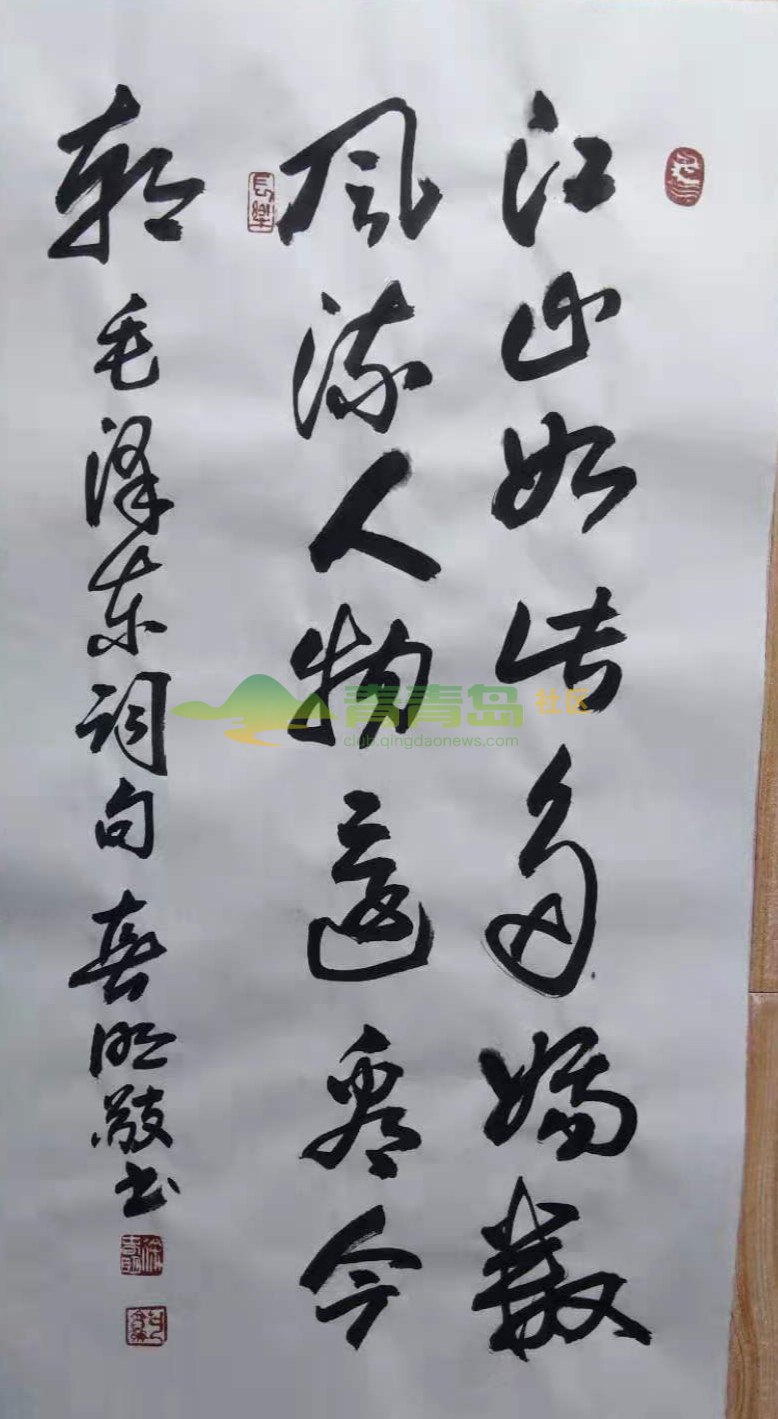 江山如此多嬌数
风流人物還看今
朝
毛泽东词句 春明敬书
長樂
青青岛社区
club.qingdaonews.com